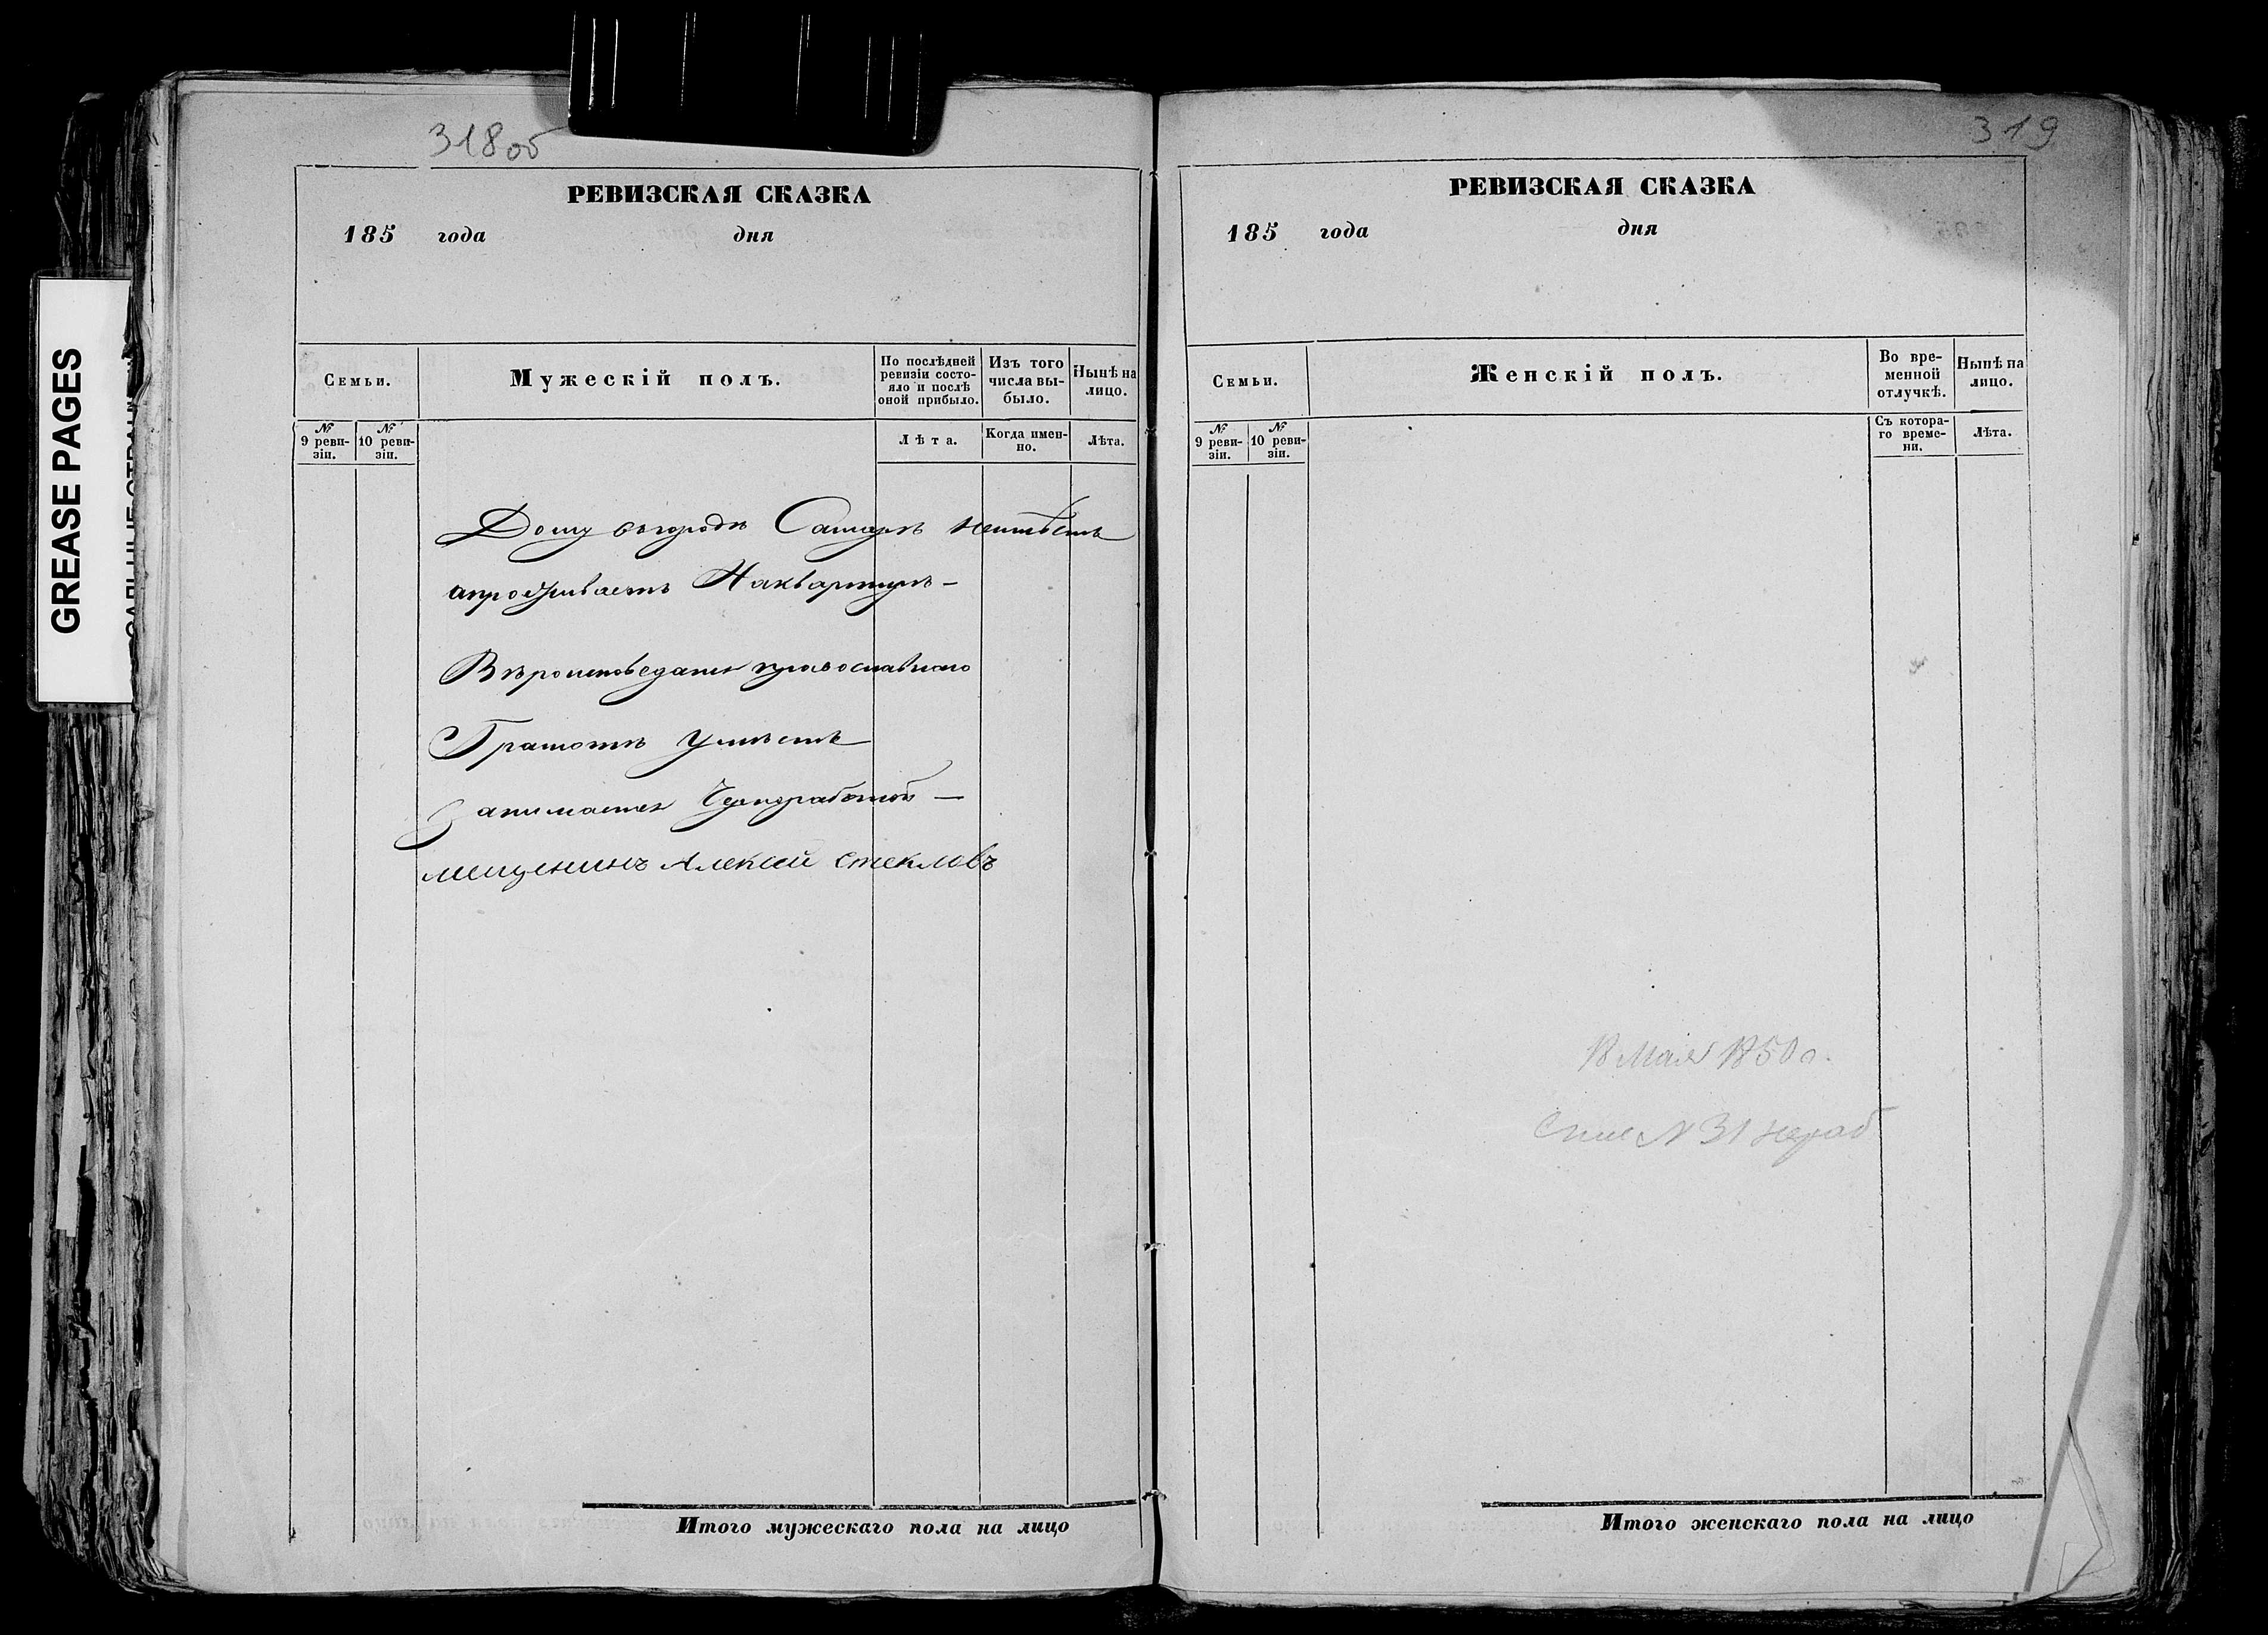 GREASE PAGES
318 об
РЕВИЗСКАЯ СКАЗКА
185 года дня
Семьи.
Мужескій полъ.
По послѣдней ревизіи состо-
яло и послѣ
оной прибыло.
Изъ того
числа вы-
было.
Нынѣ на
лицо.
№
9 реви-
зіи.
№
10 реви-
зіи.
Лѣта.
Когда имен-
но.
Лѣта.
Дому въ городѣ Самарѣ неимѣетъ
апроживаетъ Наквартирѣ —
Вѣроисповеданія православнаго
Грамотѣ умѣетъ
Занимается Чернорабочей —
мещенинъ Алексей Стекловъ
Итого мужескаго пола на лицо
319
РЕВИЗСКАЯ СКАЗКА
185 года дня
Семьи.
Женскій полъ.
Во вре-
менной
отлучкѣ.
Нынѣ на
лицо.
№
9 реви-
зіи.
№
10 реви-
зіи.
Съ котора-
го време-
ни.
Лѣта.
18 Мая 1850 г.
№ 31
Итого женскаго пола на лицо